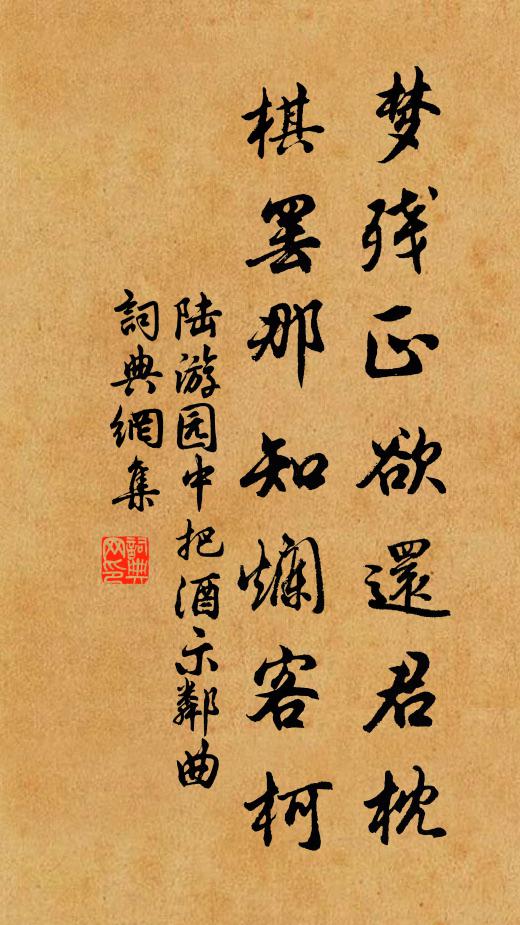 梦残正欲還君枕
棋罢那知爛客柯
陆游园中把酒示鄰曲
詞典網集
詞典网印